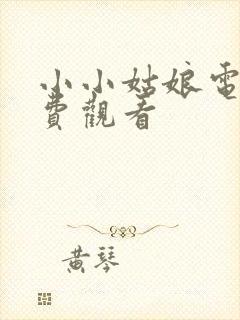 小小姑娘電
費觀看
黃琴